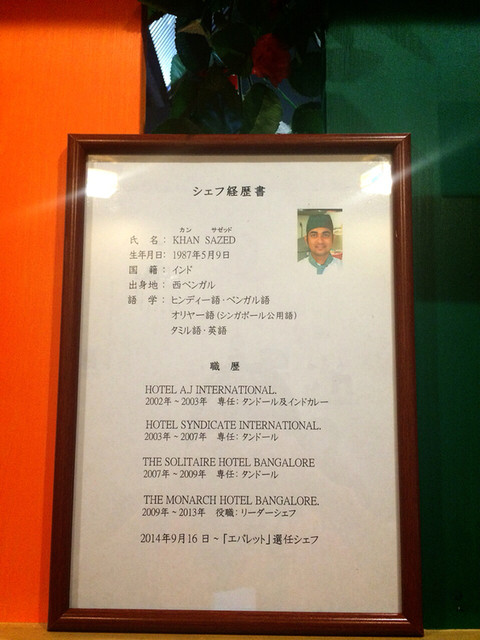 シェフ経歴書
カン サゼッド
氏 名： KHAN SAZED
生年月日： 1987年5月9日
国 籍： インド
出身地： 西ベンガル
語 学： ヒンディー語・ベンガル語
オリヤー語(シンガポール公用語)
タミル語・英語
職 歴
HOTEL A.J INTERNATIONAL.
2002年～2003年 専任：タンドール及インドカレー
HOTEL SYNDICATE INTERNATIONAL.
2003年～2007年 専任：タンドール
THE SOLITAIRE HOTEL BANGALORE
2007年～2009年 専任：タンドール
THE MONARCH HOTEL BANGALORE.
2009年～2013年 役職：リーダーシェフ
2014年9月16日～「エバレット」選任シェフ